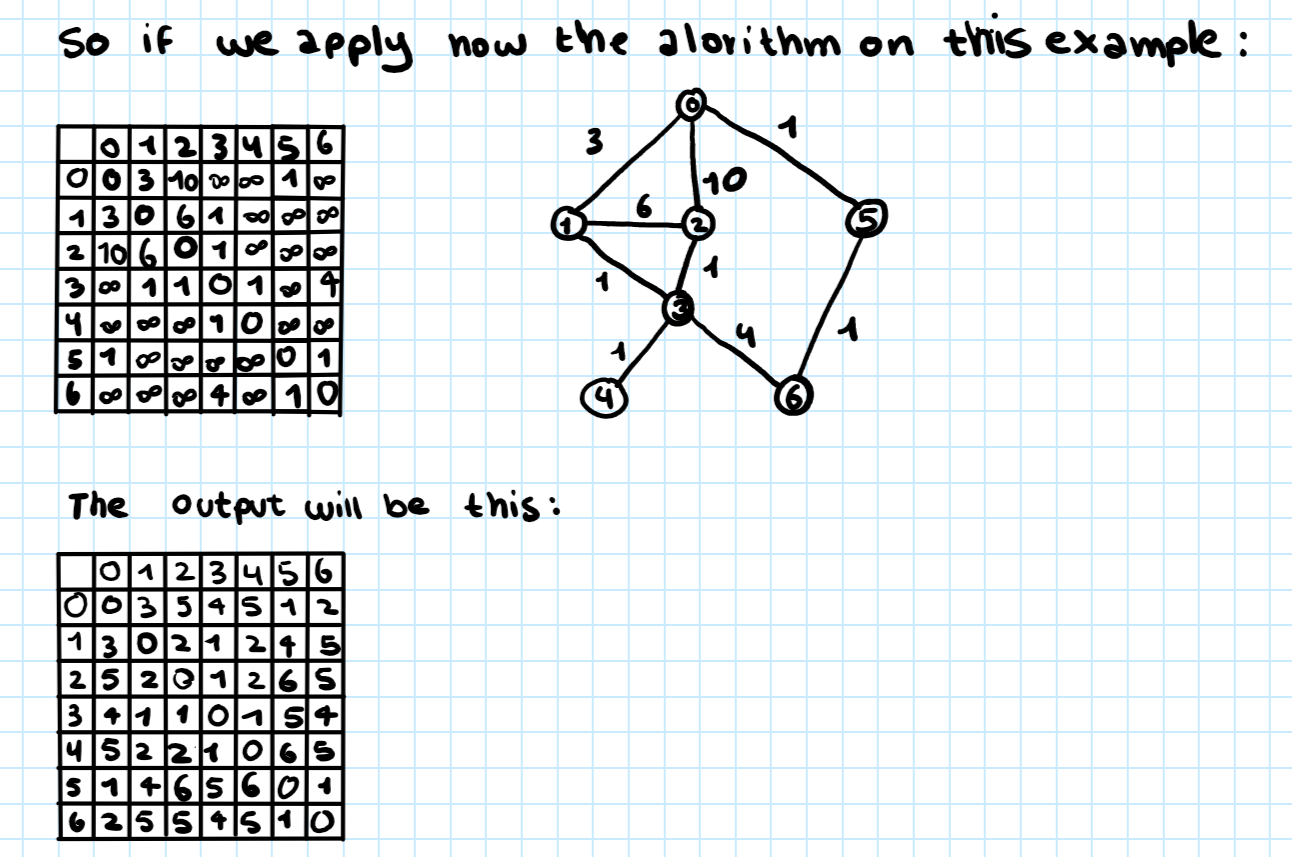 So if we apply now the alorithm on this example:
0 1 2 3 4 5 6
0 0 3 10 ∞ ∞ 1 ∞
1 3 0 6 1 ∞ ∞ ∞
2 10 6 0 1 ∞ ∞ ∞
3 ∞ 1 1 0 1 ∞ 4
4 ∞ ∞ ∞ 1 0 ∞ ∞
5 1 ∞ ∞ ∞ ∞ 0 1
6 ∞ ∞ ∞ 4 ∞ 1 0
0
3 1
10
6
1 2 5
1 1
3
4 1
1
4 6
The output will be this:
0 1 2 3 4 5 6
0 0 3 5 4 5 1 2
1 3 0 2 1 2 4 5
2 5 2 0 1 2 6 5
3 4 1 1 0 1 5 4
4 5 2 2 1 0 6 5
5 1 4 6 5 6 0 1
6 2 5 5 4 5 1 0